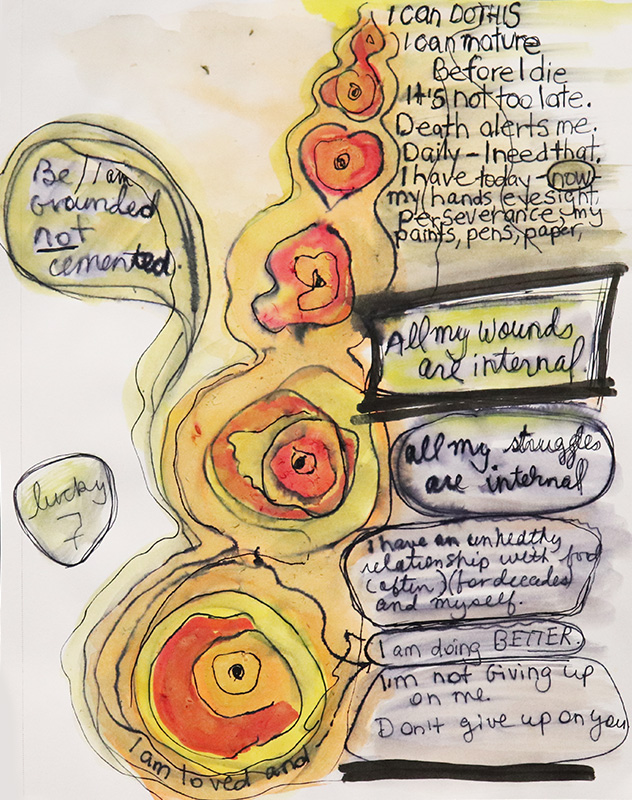 I can DO THIS
I can mature
Before I die
It's not too late.
Death alerts me.
Daily - I need that.
I have today - now -
my hands, eyesight,
perseverance, my
paints, pens, paper,
Be / I am
grounded
not
cemented.
All my wounds
are internal.
all my struggles
are internal
lucky
7
I have an unhealthy
relationship with food
(often) (for decades)
and myself.
I am doing BETTER.
I'm not Giving up
on me.
Don't give up on you
I am loved and